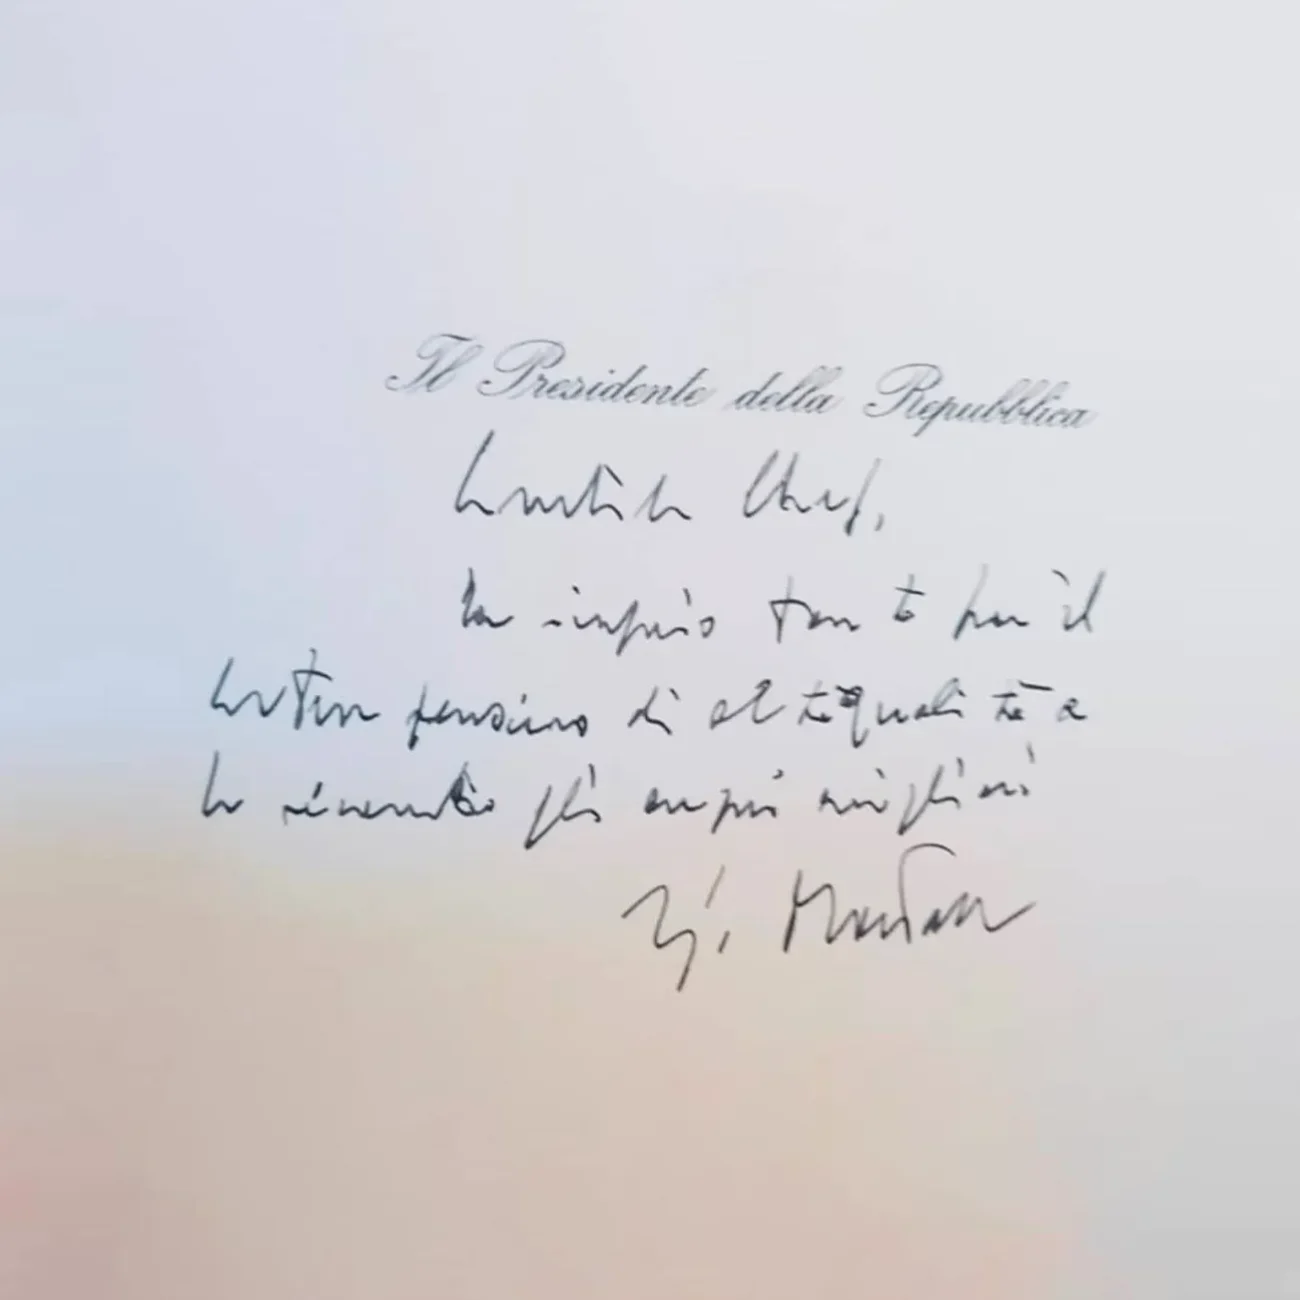 Il Presidente della Repubblica
Gentile Chef,
La ringrazio tanto per il
cortese pensiero di alta qualità e
le invio gli auguri migliori
S. Mattarella